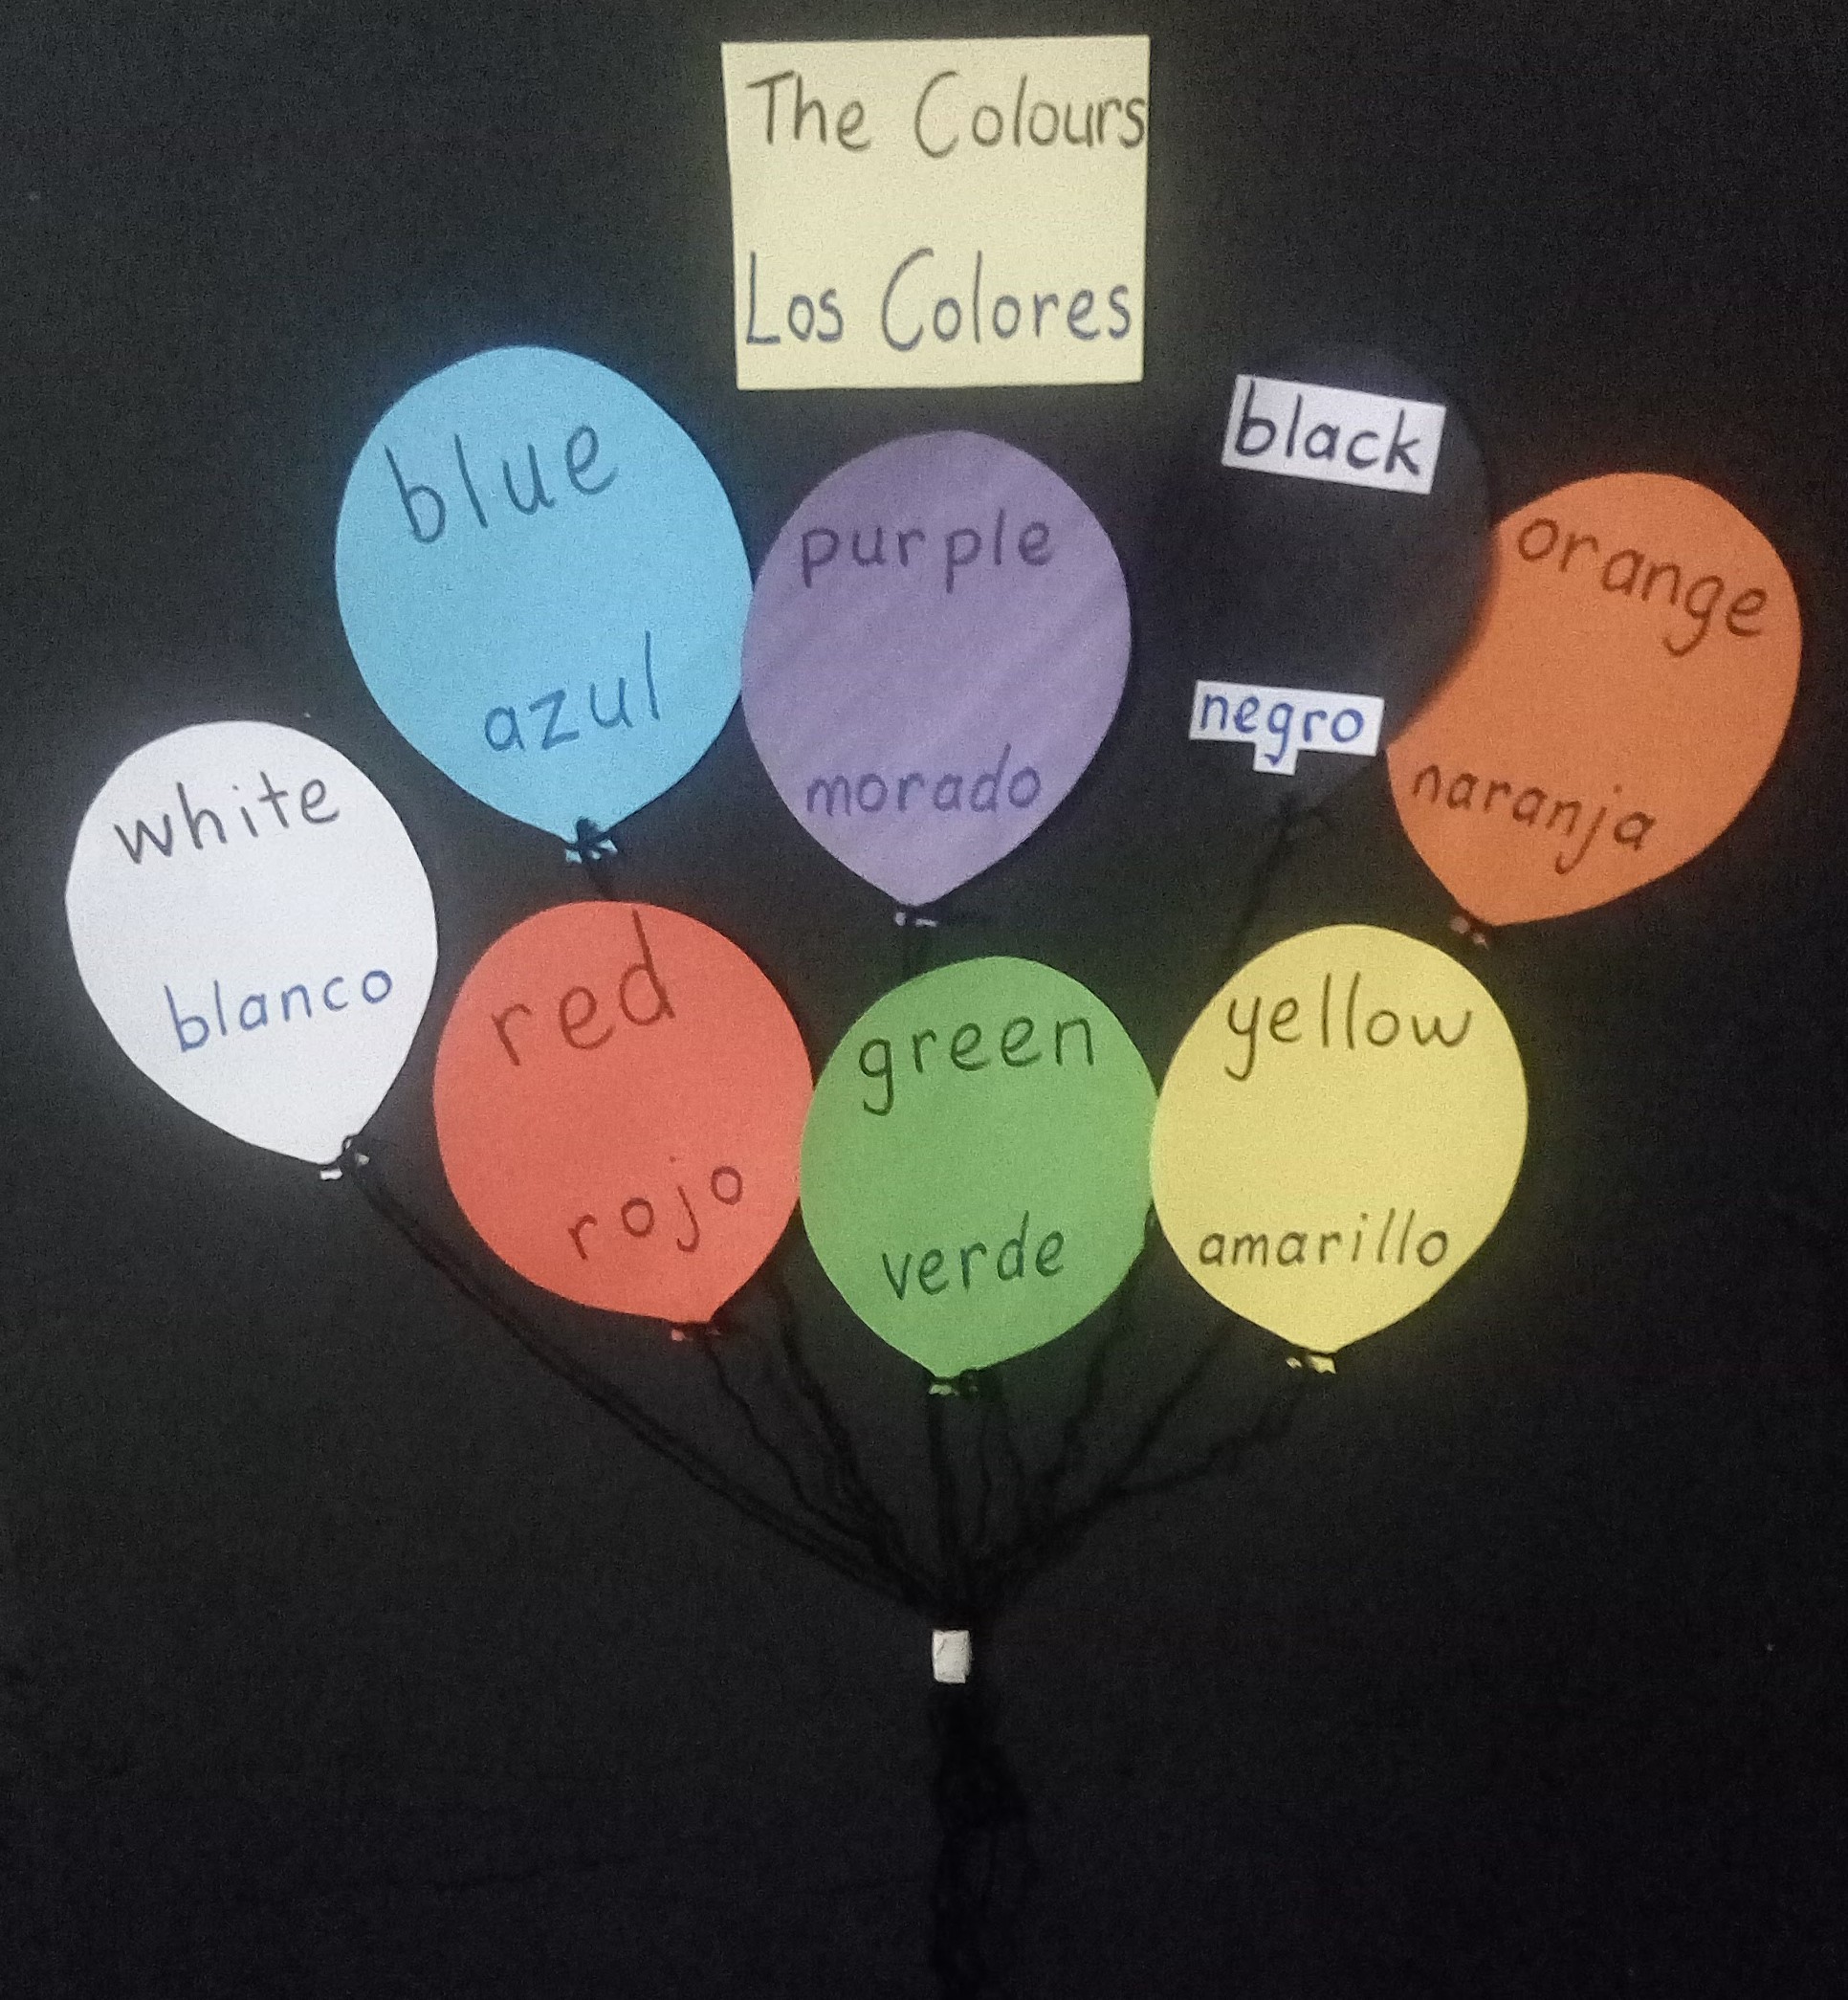 The Colours
Los Colores
blue
azul
purple
morado
black
negro
orange
naranja
white
blanco
red
rojo
green
verde
yellow
amarillo